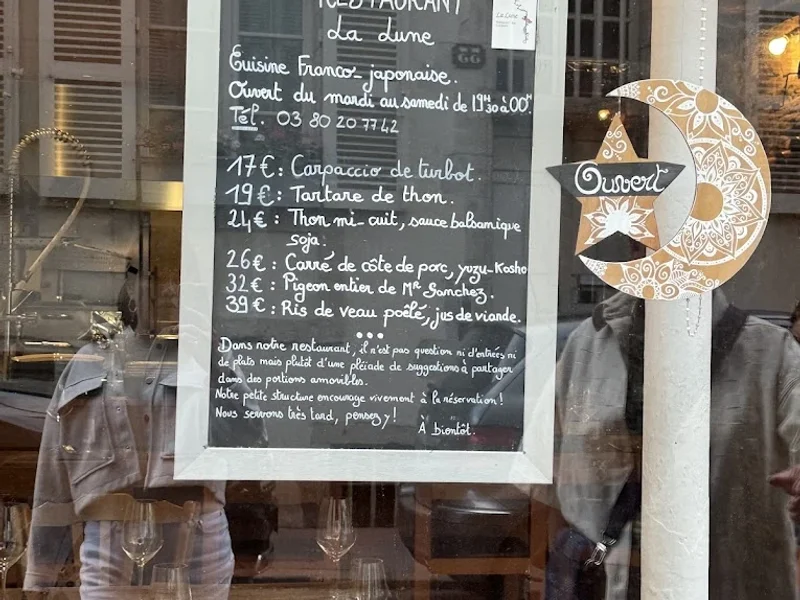 RESTAURANT
La Lune
Cuisine Franco-japonaise.
Ouvert du mardi au samedi de 19H30 à 00H.
Tél. 03 80 20 77 42
17€: Carpaccio de turbot.
19€: Tartare de thon.
24€: Thon mi-cuit, sauce balsamique
soja.
26€: Carré de côte de porc, yuzu-Kosho
32€: Pigeon entier de Mr Sanchez.
39€: Ris de veau poêlé, jus de viande.
Dans notre restaurant, il n'est pas question ni d'entrées ni
de plats mais plutôt d'une pléiade de suggestions à partager
dans des portions amovibles.
Notre petite structure encourage vivement à la réservation!
Nous servons très tard, pensez y!
À bientôt.
Ouvert